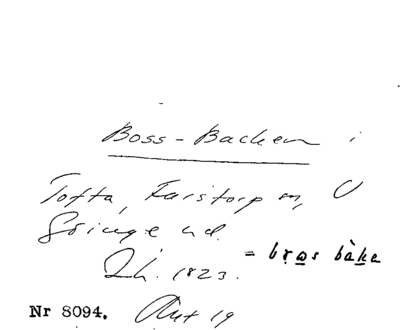 Boss-Backen i
Tofta, Farstorp sn, V
Göinge hd.
Lh. 1823.
= bṛas bàka
Nr 8094. Akt 19